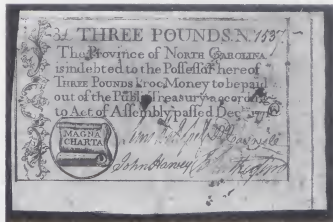 THREE POUNDS. N. 1537
The Province of NORTH CAROLINA
is indebted to the Possessor hereof
THREE POUNDS Proc. Money to be paid
out of the Publick Treasury accordg.
to Act of Assembly passed Decr. 1771
MAGNA
CHARTA
John Harvey